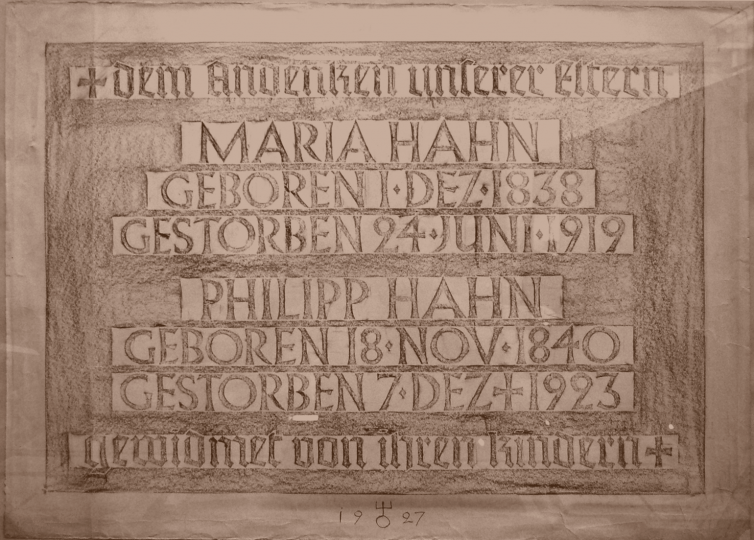 + dem Andenken unserer Eltern
MARIA HAHN
GEBOREN 1·DEZ·1838
GESTORBEN 24·JUNI·1919
PHILIPP HAHN
GEBOREN 18·NOV·1840
GESTORBEN 7·DEZ+1923
gewidmet von ihren kindern +
19 27